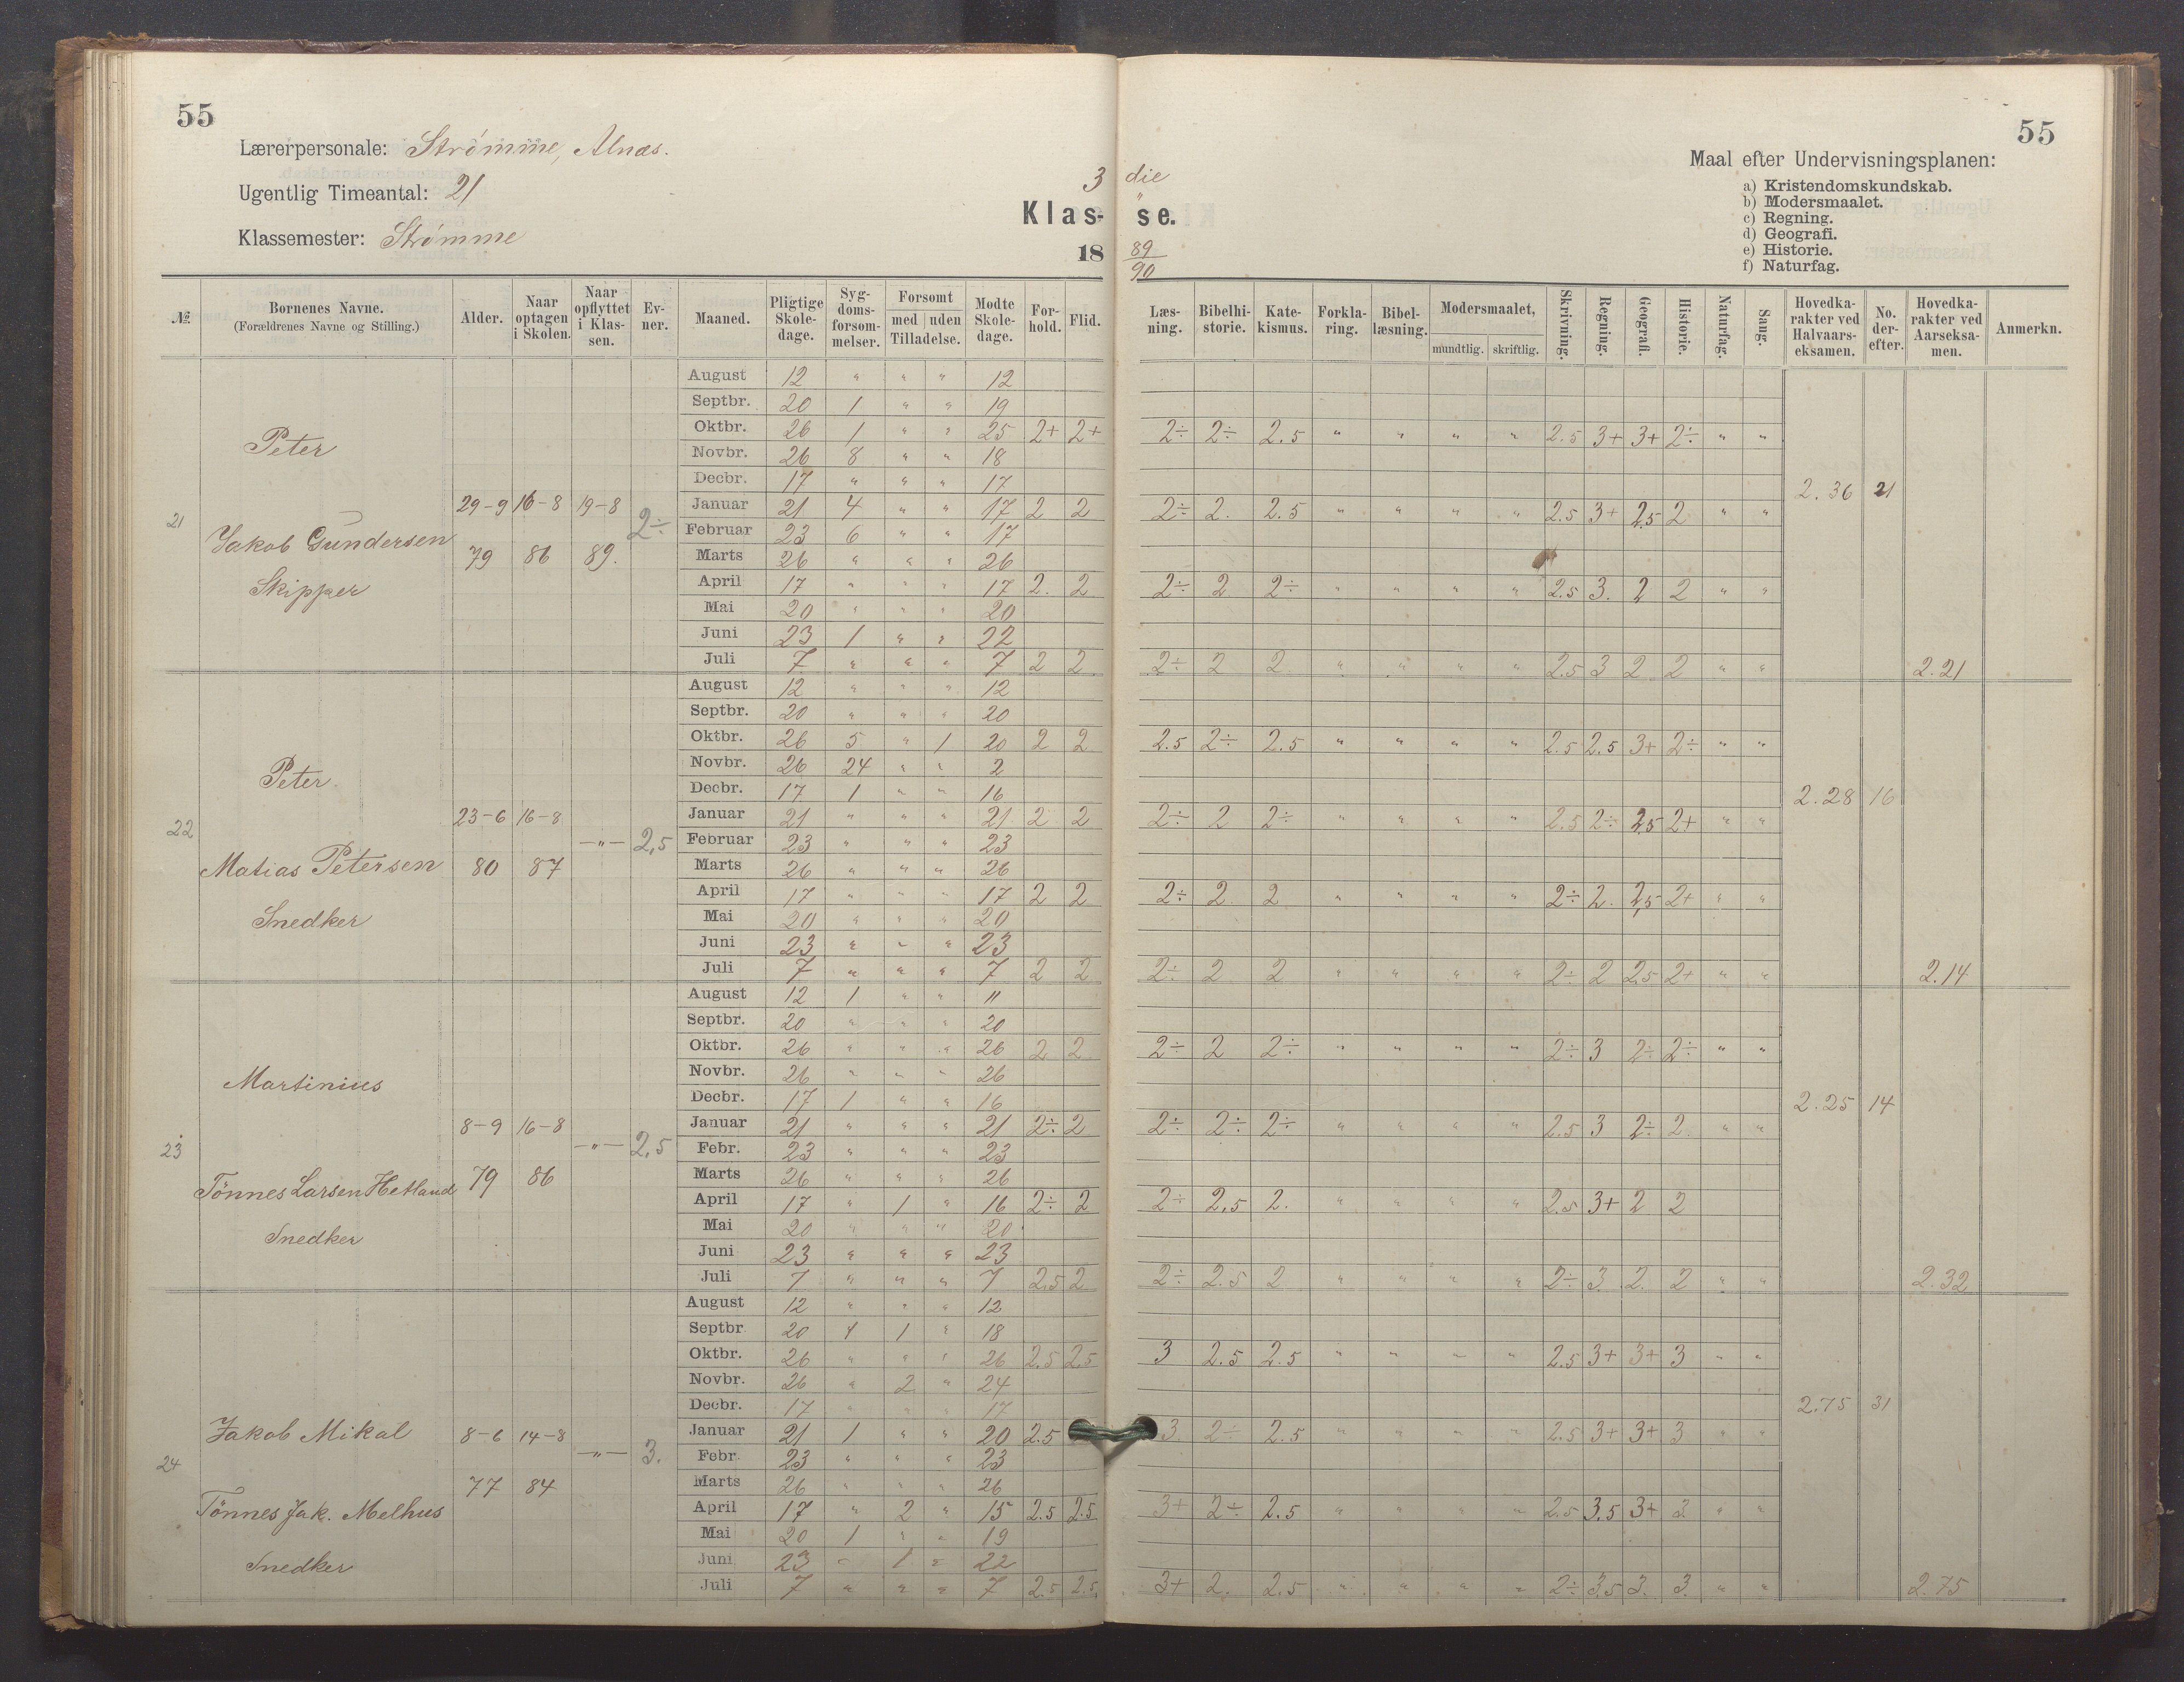 55
55
Lærerpersonale: Strømme, Alnæs.
Ugentlig Timeantal: 21
Klassemester: Strømme
3 die
Klas- se.
18 89/90
Maal efter Undervisningsplanen:
a) Kristendomskundskab.
b) Modersmaalet.
c) Regning.
d) Geografi.
e) Historie.
f) Naturfag.
№ Børnenes Navne. (Forældrenes Navne og Stilling.) Alder. Naar optagen i Skolen. Naar opflyttet i Klassen. Evner. Maaned. Pligtige Skoledage. Sygdomsforsømmelser. Forsømt med uden Tilladelse. Mødte Skoledage. Forhold. Flid. Læsning. Bibelhistorie. Katekismus. Forklaring. Bibellæsning. Modersmaalet, mundtlig. skriftlig. Skrivning. Regning. Geografi. Historie. Naturfag. Sang. Hovedkarakter ved Halvaarseksamen. No. derefter. Hovedkarakter ved Aarseksamen. Anmerkn.
21 Peter
Jakob Gundersen
Skipper
29-9 79 16-8 86 19-8 89. 2÷
August 12 " " " 12
Septbr. 20 1 " " 19
Oktbr. 26 1 " " 25 2+ 2+ 2÷ 2÷ 2.5 " " " " 2.5 3+ 3+ 2÷ " "
Novbr. 26 8 " " 18
Decbr. 17 " " " 17
2.36 21
Januar 21 4 " " 17 2 2 2÷ 2. 2.5 " " " " 2.5 3+ 2.5 2 " "
Februar 23 6 " " 17
Marts 26 " " " 26
April 17 " " " 17 2. 2 2÷ 2 2÷ " " " " 2.5 3. 2 2 " "
Mai 20 " " " 20
Juni 23 1 " " 22
Juli 7 " " " 7 2 2 2÷ 2 2 " " " " 2.5 3 2 2 " " 2.21
22 Peter
Matias Petersen
Snedker
23-6 80 16-8 87 -"- 2,5
August 12 " " " 12
Septbr. 20 " " " 20
Oktbr. 26 5 " 1 20 2 2 2.5 2÷ 2.5 " " " " 2.5 2.5 3+ 2÷ " "
Novbr. 26 24 " " 2
Decbr. 17 1 " " 16
2.28 16
Januar 21 " " " 21 2 2 2÷ 2 2÷ " " " " 2.5 2÷ 2.5 2+ " "
Februar 23 " " " 23
Marts 26 " " " 26
April 17 " " " 17 2 2 2÷ 2. 2 " " " " 2÷ 2. 2,5 2+ " "
Mai 20 " " " 20
Juni 23 " " " 23
Juli 7 " " " 7 2 2 2÷ 2 2 " " " " 2÷ 2 2.5 2+ " " 2.14
23 Martinius
Tønnes Larsen Hetland
Snedker
8-9 79 16-8 86 -"- 2,5
August 12 1 " " 11
Septbr. 20 " " " 20
Oktbr. 26 " " " 26 2 2 2÷ 2 2÷ " " " " 2÷ 3 2÷ 2÷ " "
Novbr. 26 " " " 26
Decbr. 17 1 " " 16
2.25 14
Januar 21 " " " 21 2÷ 2 2÷ 2÷ 2÷ " " " " 2.5 3 2÷ 2. " "
Febr. 23 " " " 23
Marts 26 " " " 26
April 17 " 1 " 16 2÷ 2 2÷ 2,5 2. " " " " 2.5 3+ 2 2
Mai 20 " " " 20
Juni 23 " " " 23
Juli 7 " " " 7 2.5 2 2÷ 2.5 2 " " " " 2÷ 3. 2. 2 " " 2.32
24 Jakob Mikal
Tønnes Jak. Melhus
Snedker
8-6 77 14-8 84 -"- 3.
August 12 " " " 12
Septbr 20 1 1 " 18
Oktbr. 26 " " " 26 2.5 2.5 3 2.5 2.5 " " " " 2.5 3+ 3+ 3 " "
Novbr. 26 " 2 " 24
Decbr. 17 " " " 17
2.75 31
Januar 21 1 " " 20 2.5 3. 2÷ 2.5 " " " " 2.5 3+ 3+ 3 " "
Febr. 23 " " " 23
Marts 26 " " " 26
April 17 " 2 " 15 2.5 2.5 3+ 2÷ 2.5 " " " " 2.5 3.5 3+ 3 " "
Mai 20 1 " " 19
Juni 23 " 1 " 22
Juli 7 " " " 7 2.5 2.5 3+ 2. 2.5 " " " " 2÷ 3.5 3. 3. " " 2.75